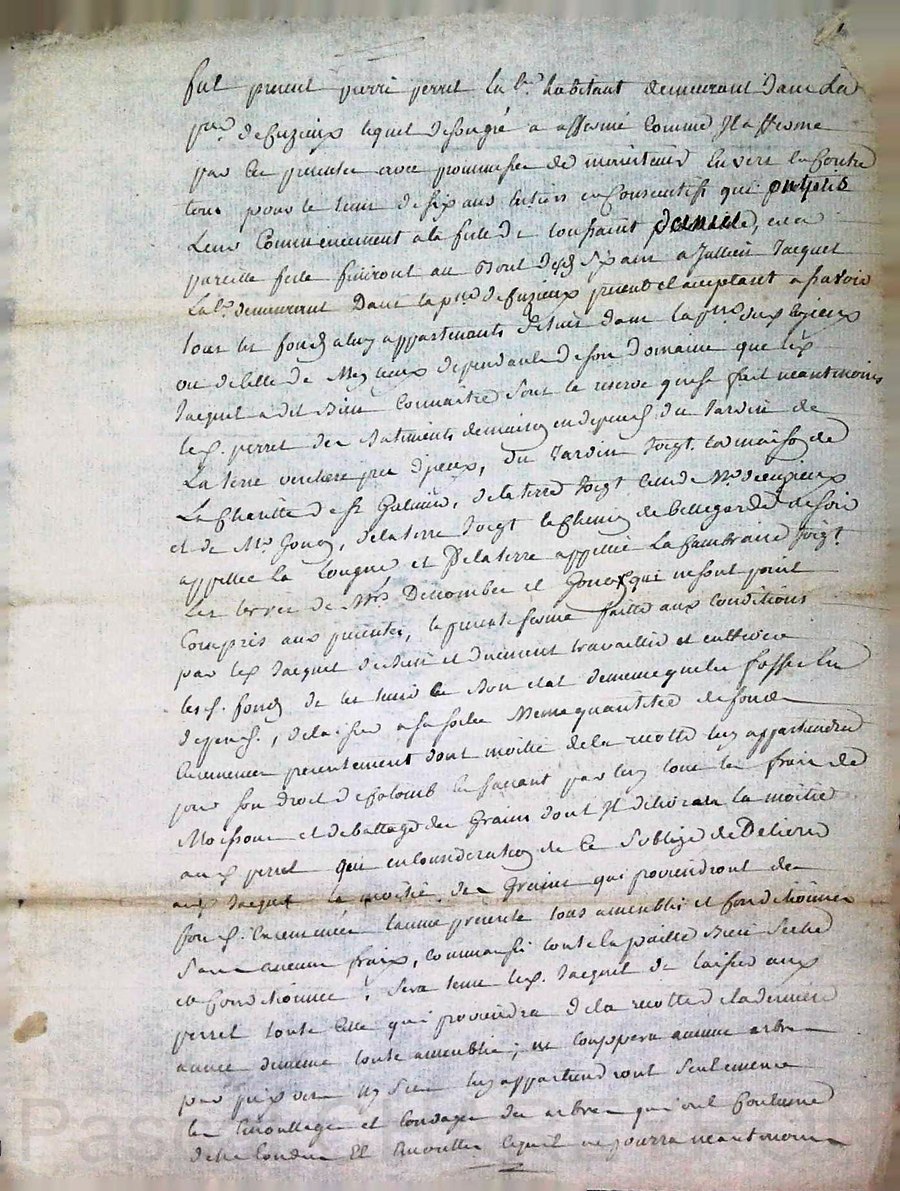 fut present pierre perret lab.r habitant demeurant dans la
par.se de Cuzieux lequel de son gré a affermé comme Il afferme
par ces presentes avec promesse de maintenir Envers Et Contre
tous pour le tems de six ans Entiers et Consecutifs qui ont pris
Leur Commencement a la fete de toussaint derniere, et a
pareille fete finiront au Bout desd. six ans a Jullien Jacquet
Lab.r demeurant Dans la p.sse de Cuzieux present et acceptant a savoir
tous les fonds a luy appartenants situés dans la p.sse
ou de celle de dependants de son Domaine que led.
Jacquet a dit Bien Connaitre sous la reserve que se fait neantmoins
led. perret des Batiments de maison en dependts du Jardin de
La terre verchere prez d'yceux, du Jardin Joigt. la maison de
La Charitté de St Galmier, de la terre Joigt celle de Mr de Cuzieux
et de Mr Gonon, de la terre Joigt le Chemin de Bellegarde
appellee La Longue et De la terre appellée La Joigt.
Les terres de Mrs et Gonon qui ne sont point
Compris aux presentes, la presente ferme faitte aux conditions
par led. Jacquet de Bien et duement travailler et cultiver
lesd. fonds de les tenir en Bon etat de meme que les fosses En
dependts., de laisser a sa sortie Meme quantitée de fonds
Ensemencés presentement dont moitié de la recotte luy appartiendra
pour son droit de Colomb En faisant par luy tous les frais de
Moissons et de battage des Grains dont Il delivrera la moitié
aud. perret qui en Consideration de Ce s'oblige de Delivrer
aud. Jacquet la moitié des Grains qui proviendront des
fonds. Ensemencés l'année presente tous ameublis et Conditionnés
sans aucuns fraix, comme aussi toute la paille Bien seche
et Conditionnée, sera tenu led. Jacquet de laisser aud.
perret toute Celle qui proviendra de la recotte de la derniere
année de meme toute ameublie; ne couppera aucuns arbres
par pied vert ny sec luy appartiendront seulement
les Emoullages et tondages des arbres qui ont Coutume
d'etre tondus Et Emondés lequel ne pourra neantmoins